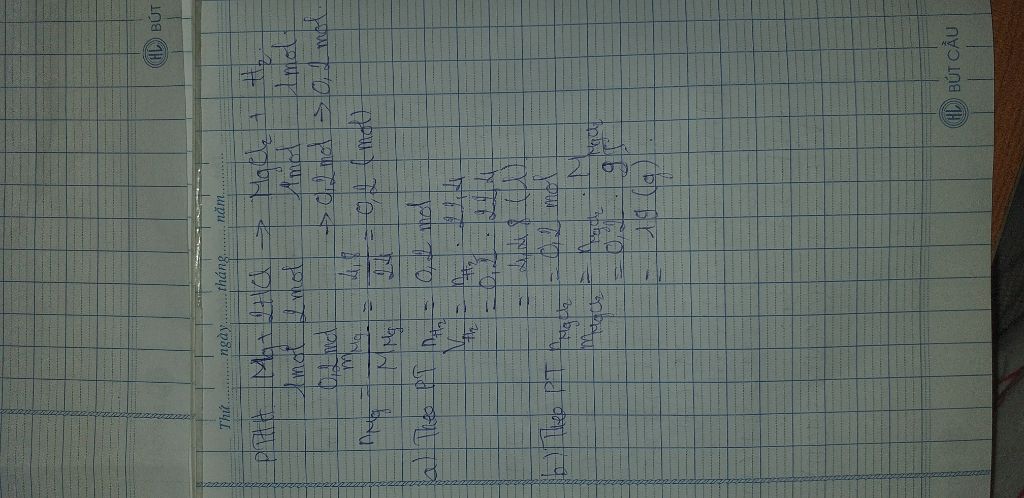 BÚT
BÚT CẦU
Thứ ........ ngày ........ tháng ........ năm ........
PTHH: Mg + 2HCl → MgCl₂ + H₂
1mol 2mol 1mol 1mol.
0,2mol → 0,2mol → 0,2mol.
nMg = mMg / MMg = 4,8 / 24 = 0,2 (mol)
a) Theo PT nH₂ = 0,2 mol
VH₂ = nH₂ . 22,4
= 0,2 . 22,4
= 4,48 (l)
b) Theo PT nMgCl₂ = 0,2 mol
mMgCl₂ = nMgCl₂ . MMgCl₂
= 0,2 . 95
= 19 (g)